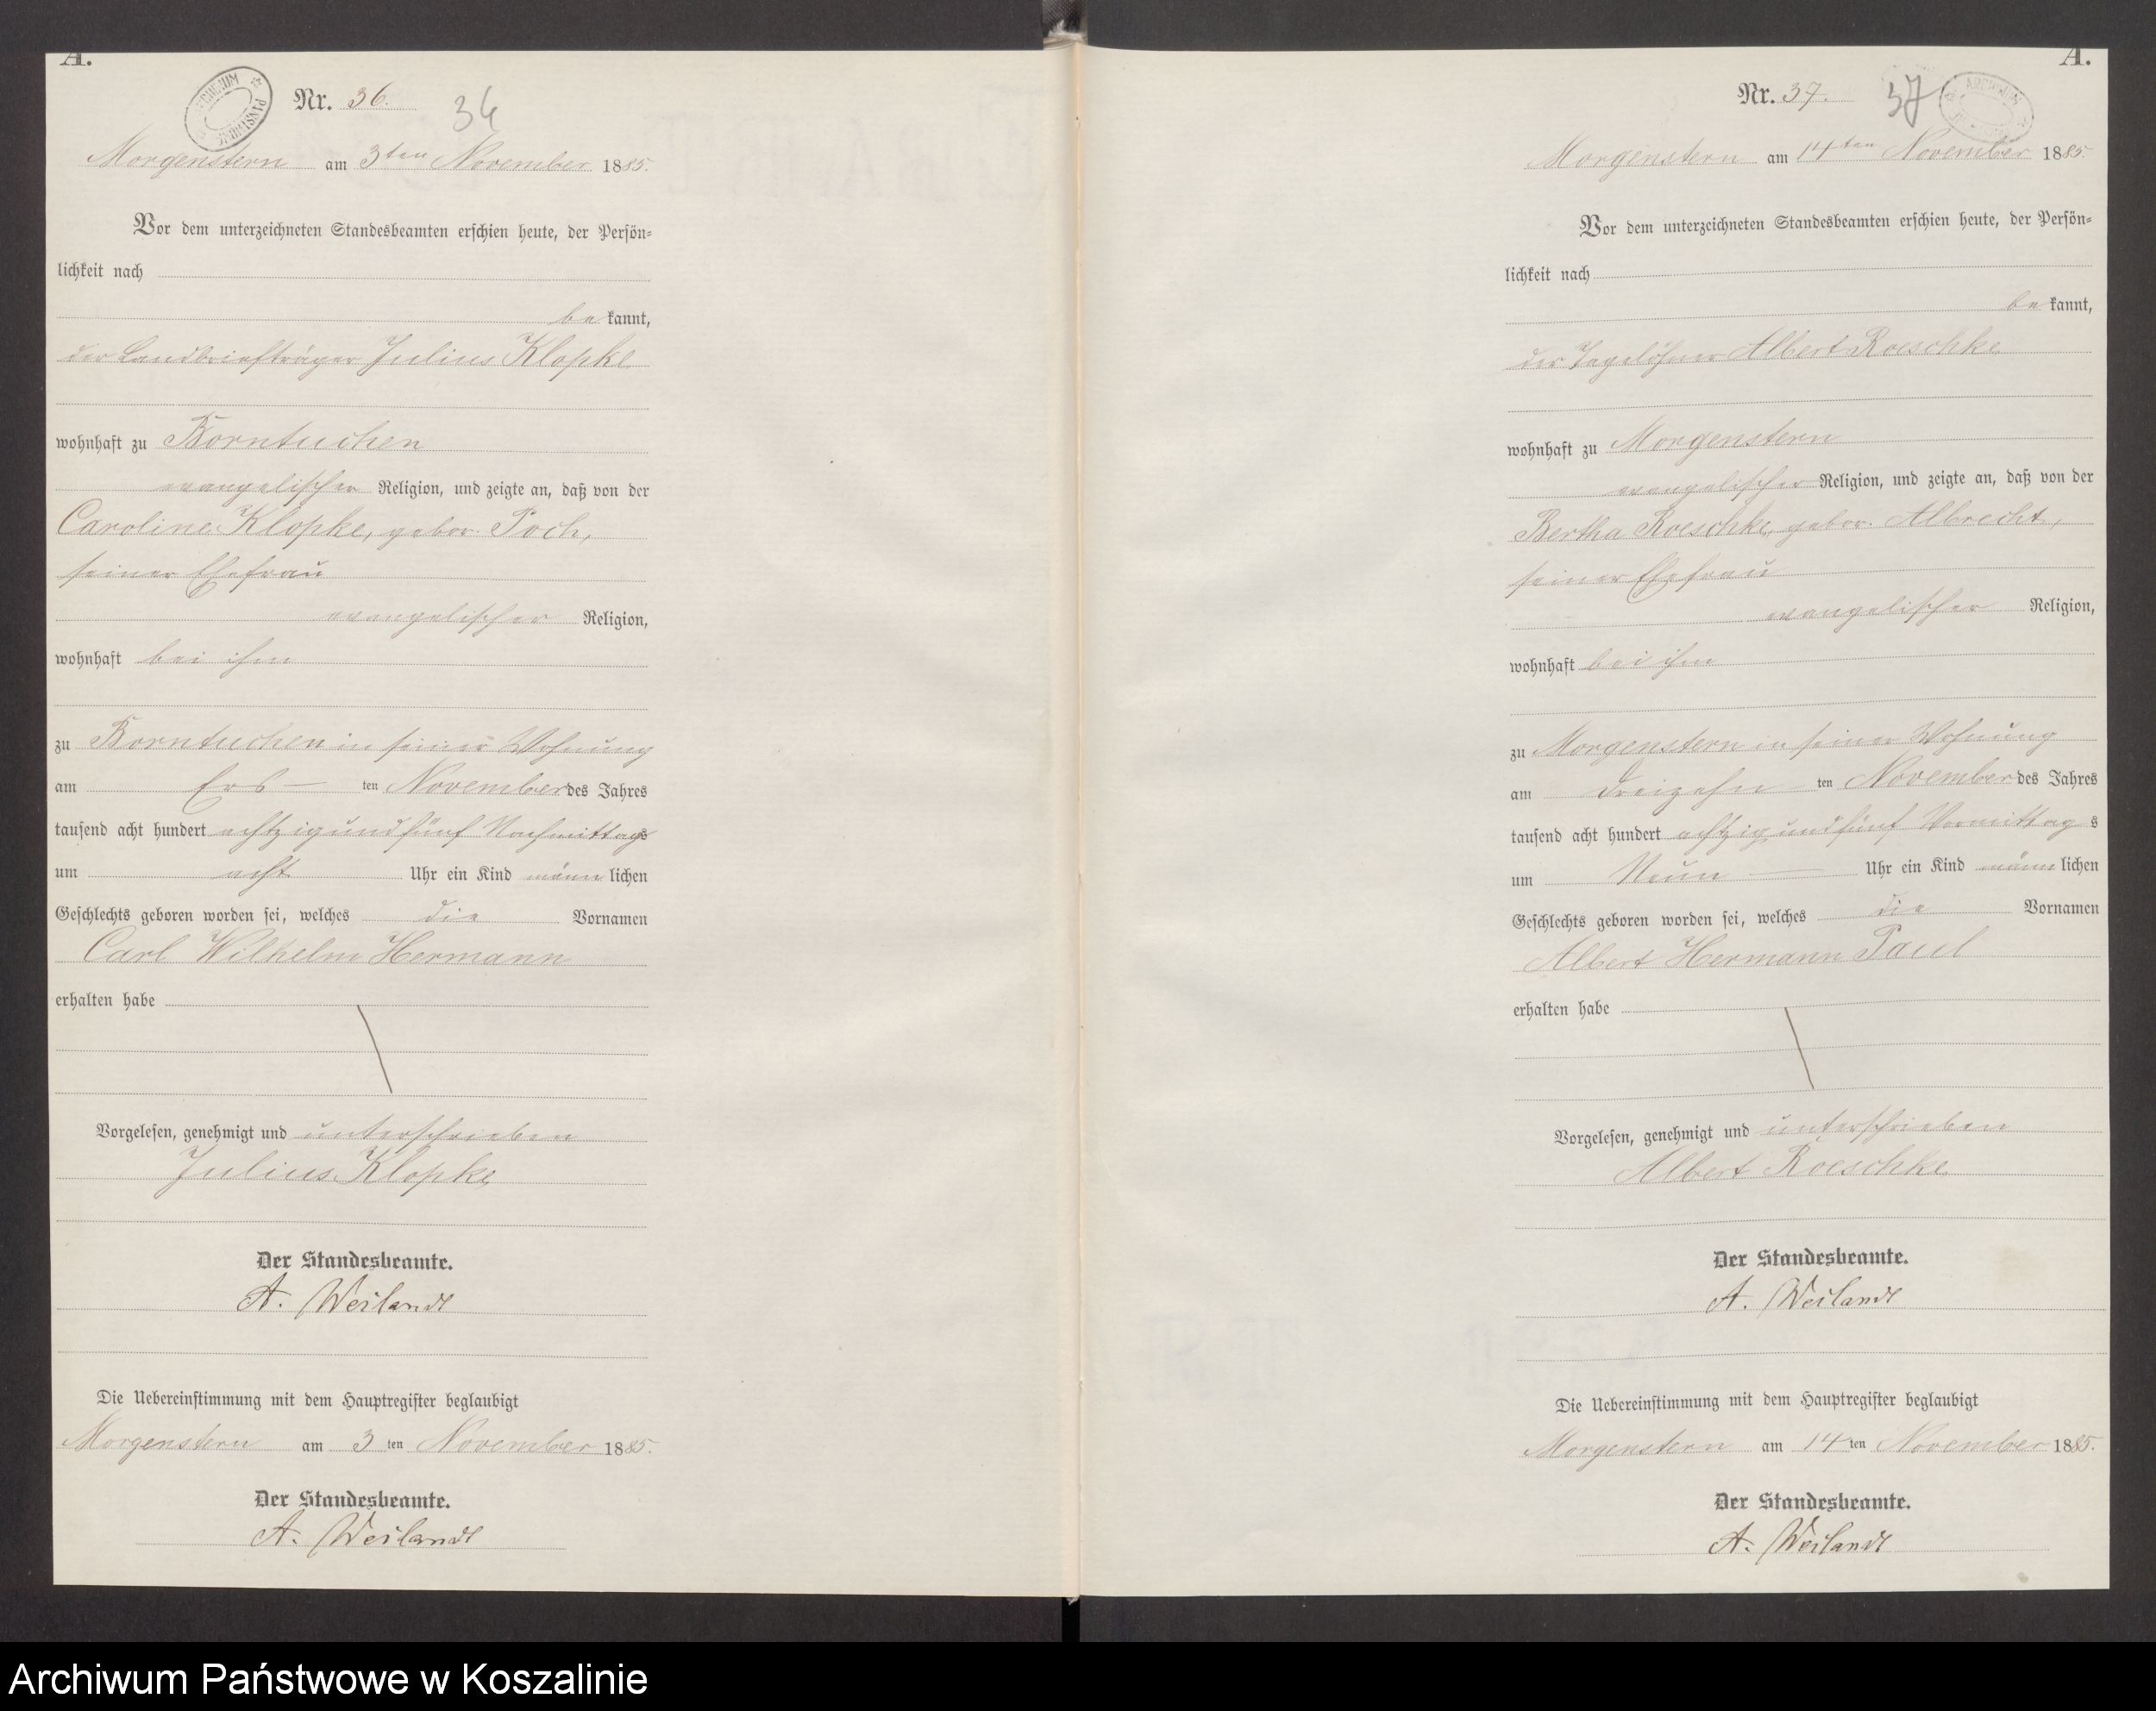 A.
Nr. 36.
36
Morgenstern am 3ten November 1885.
Vor dem unterzeichneten Standesbeamten erschien heute, der Persön=
lichkeit nach
bekannt,
der Landbriefträger Julius Klopke
wohnhaft zu Borntuchen
evangelischer Religion, und zeigte an, daß von der
Caroline Klopke, gebor. Poch,
seiner Ehefrau
evangelischer Religion,
wohnhaft bei ihm
zu Borntuchen in seiner Wohnung
am Ers- ten November des Jahres
tausend acht hundert achtzig und fünf Nachmittags
um acht Uhr ein Kind männlichen
Geschlechts geboren worden sei, welches die Vornamen
Carl Wilhelm Hermann
erhalten habe
Vorgelesen, genehmigt und unterschrieben
Julius Klopke
Der Standesbeamte.
A. Weilandt
Die Uebereinstimmung mit dem Hauptregister beglaubigt
Morgenstern am 3 ten November 1885.
Der Standesbeamte.
A. Weilandt
A.
Nr. 37.
37
Morgenstern am 14ten November 1885.
Vor dem unterzeichneten Standesbeamten erschien heute, der Persön=
lichkeit nach
bekannt,
der Tagelöhner Albert Roeschke
wohnhaft zu Morgenstern
evangelischer Religion, und zeigte an, daß von der
Bertha Roeschke, gebor. Albrecht,
seiner Ehefrau
evangelischer Religion,
wohnhaft bei ihm
zu Morgenstern in seiner Wohnung
am dreizehn ten November des Jahres
tausend acht hundert achtzig und fünf Vormittags
um Neun Uhr ein Kind männlichen
Geschlechts geboren worden sei, welches die Vornamen
Albert Hermann Paul
erhalten habe
Vorgelesen, genehmigt und unterschrieben
Albert Roeschke
Der Standesbeamte.
A. Weilandt
Die Uebereinstimmung mit dem Hauptregister beglaubigt
Morgenstern am 14 ten November 1885.
Der Standesbeamte.
A. Weilandt
Archiwum Państwowe w Koszalinie